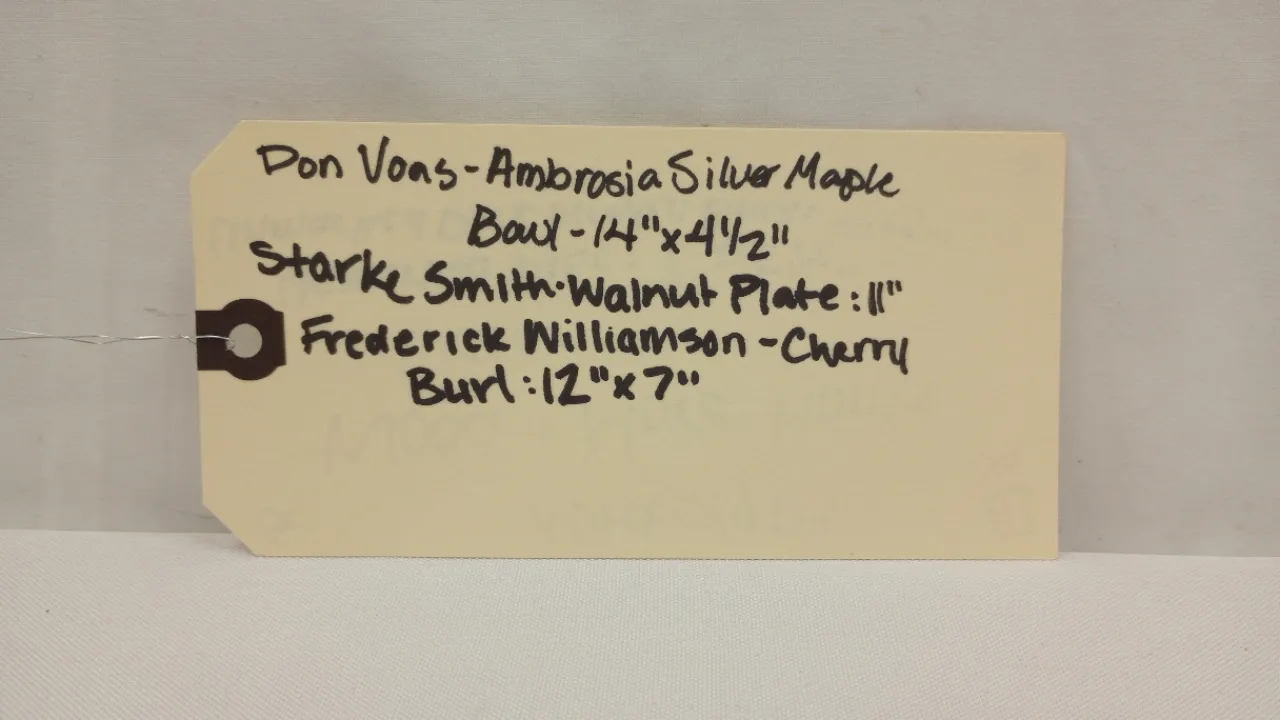 Don Voas - Ambrosia Silver Maple
Bowl - 14" x 4 1/2"
Starke Smith - Walnut Plate : 11"
Frederick Williamson - Cherry
Burl : 12" x 7"